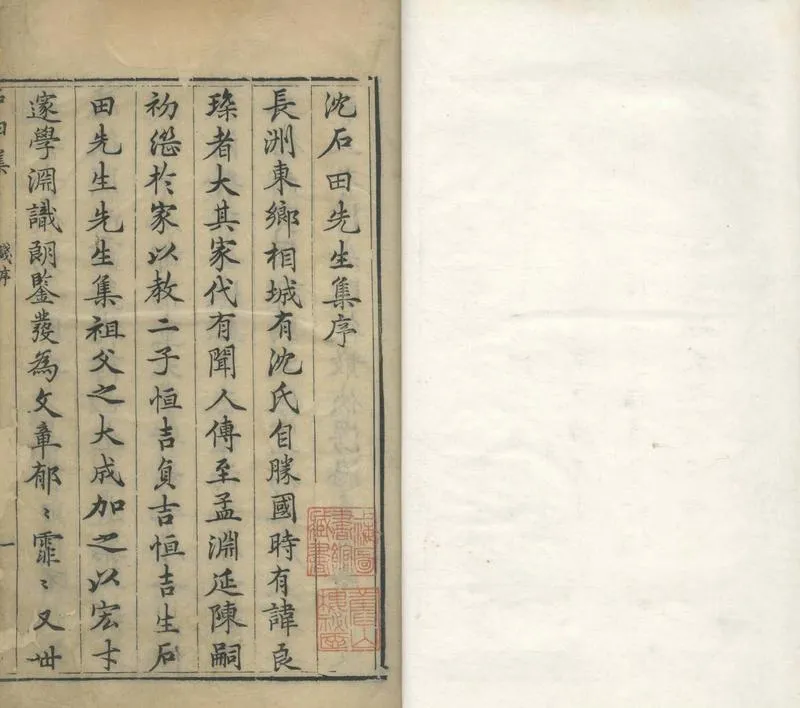 沈石田先生集序
長洲東鄉相城有沈氏自勝國時有諱良
琛者大其家代有聞人傳至孟淵延陳嗣
初慫於家以教二子恒吉貞吉恒吉生石
田先生先生集祖父之大成加之以宏才
邃學淵識朗鑒發為文章郁〻霏〻又世
石田集
錢序
一